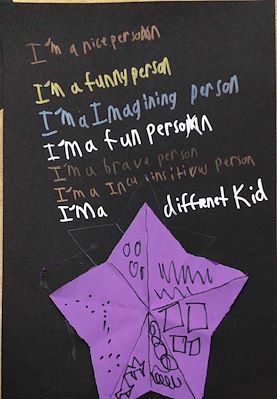 I'm a nice person
I'm a funny person
I'm a Imagining person
I'm a fun person
I'm a brave person
I'm a person
I'm a diffrenet kid